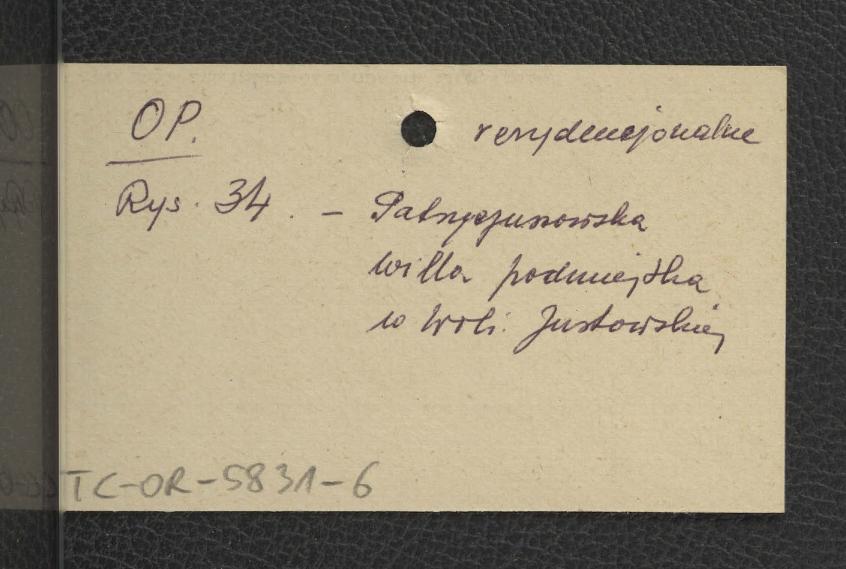 OP. rezydencjonalne
Rys. 34. – Patrycjuszowska
willa podmiejska
w Woli Justowskiej
TC-OR-5831-6